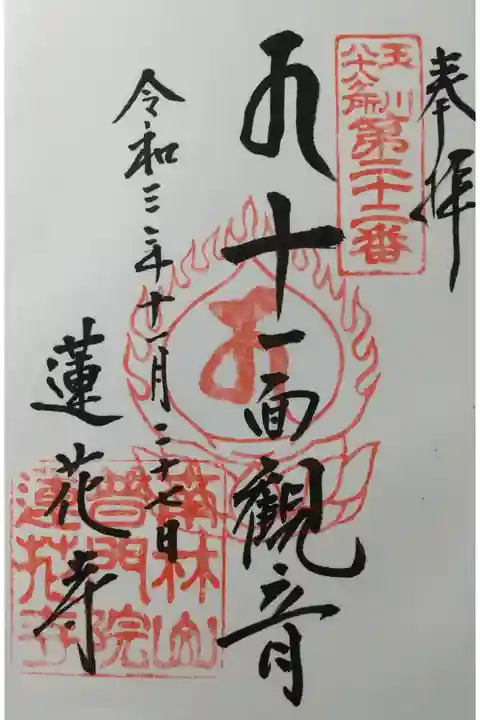 奉拝
玉川
八十八ケ所
第三十二番
十一面観音
令和三年十一月二十七日
蓮花寺
華林山
普門院
蓮花寺